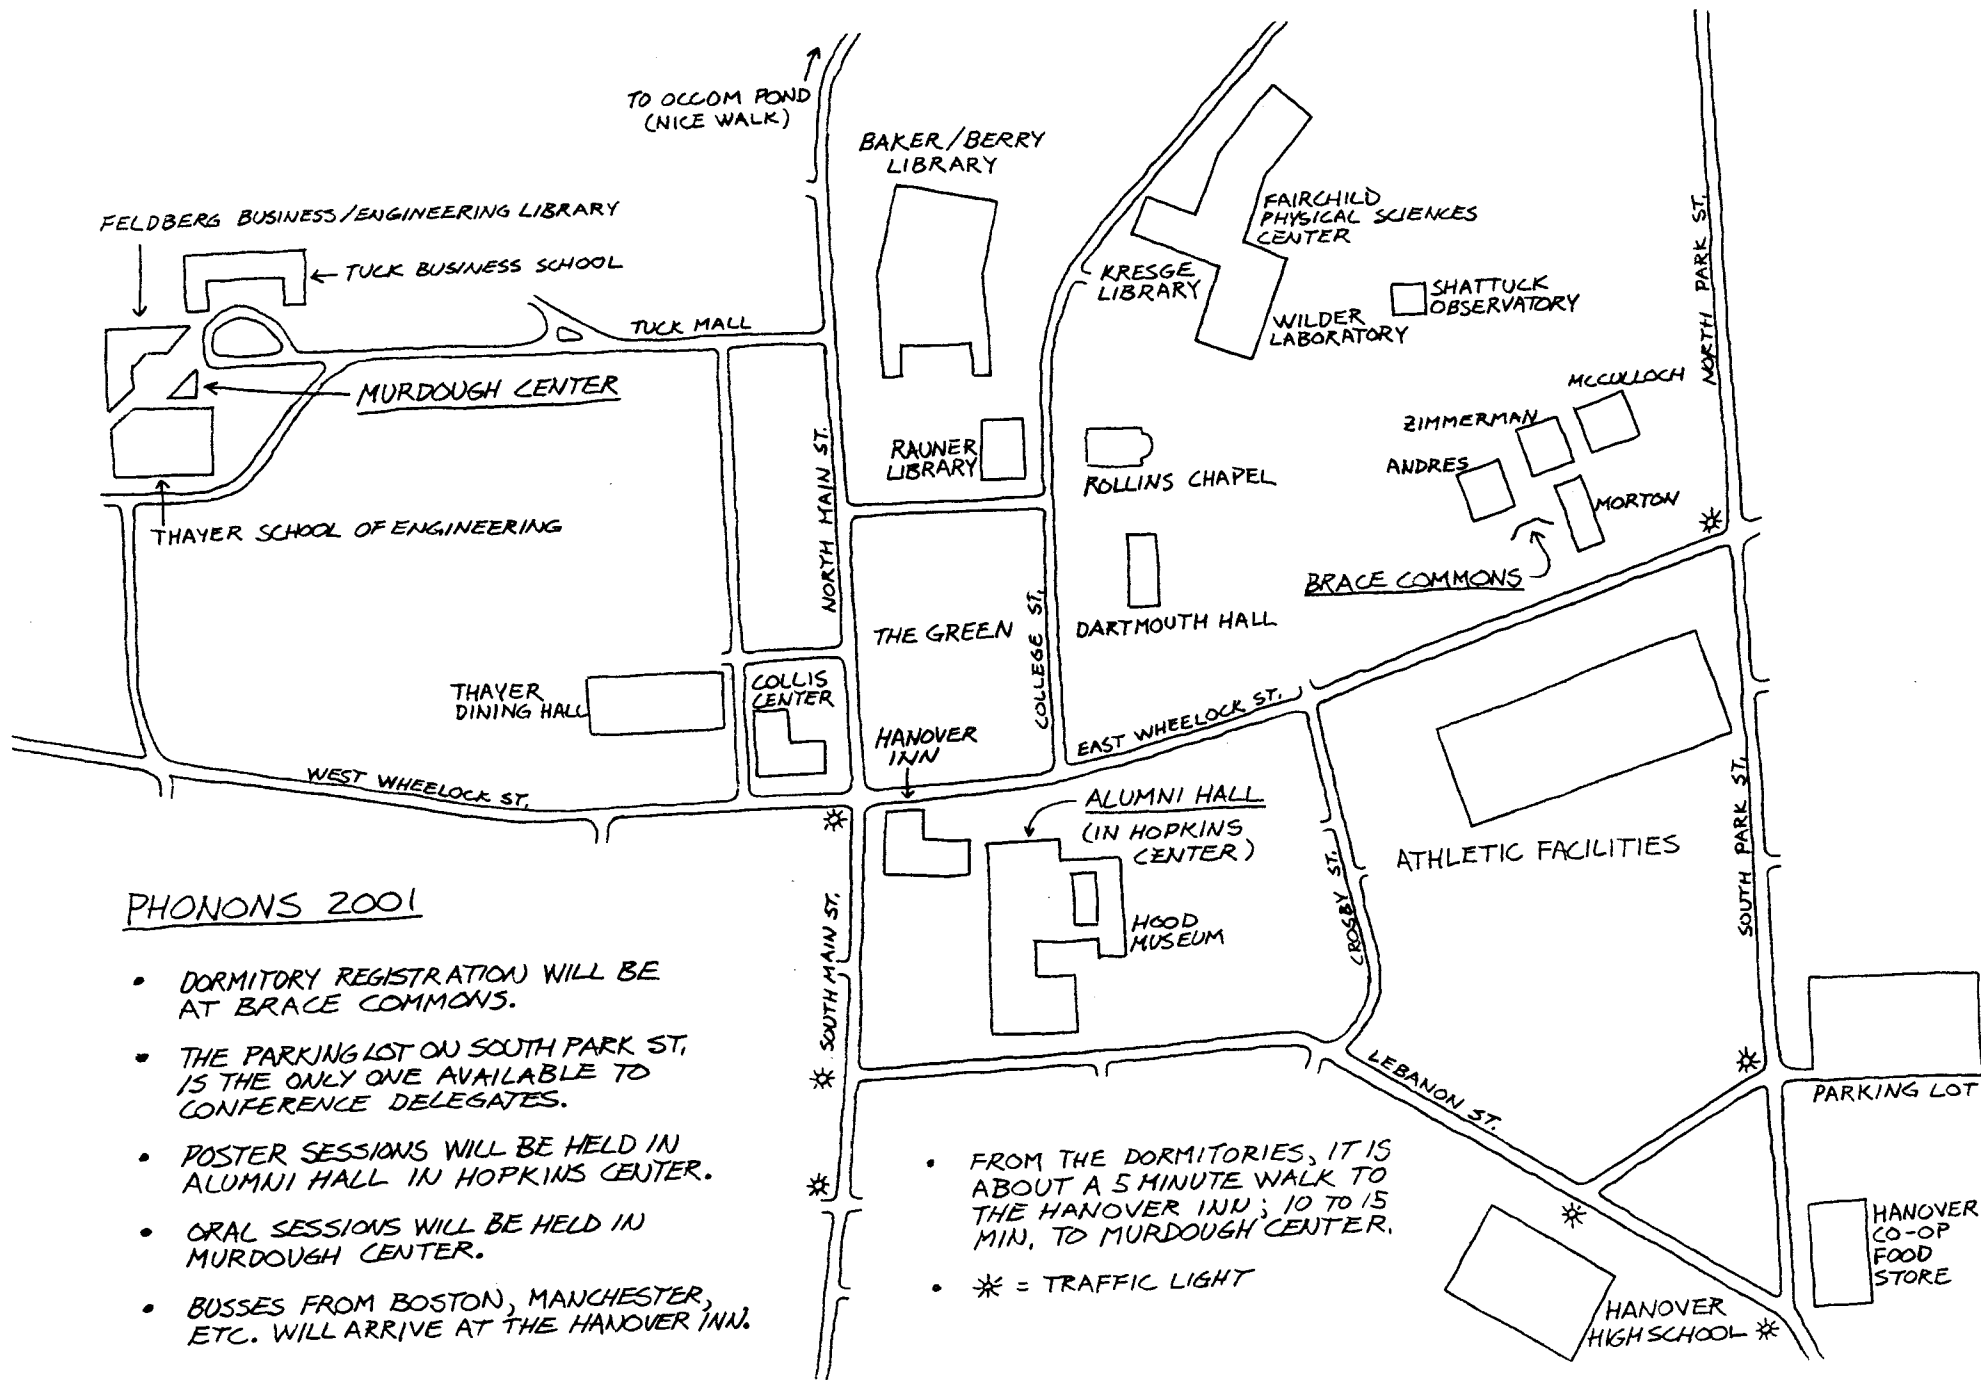 TO OCCOM POND
(NICE WALK)
BAKER/BERRY
LIBRARY
FELDBERG BUSINESS/ENGINEERING LIBRARY
TUCK BUSINESS SCHOOL
FAIRCHILD
PHYSICAL SCIENCES
CENTER
KRESGE
LIBRARY
SHATTUCK
OBSERVATORY
WILDER
LABORATORY
NORTH PARK ST.
TUCK MALL
MURDOUGH CENTER
MCCULLOCH
ZIMMERMAN
ANDRES
MORTON
RAUNER
LIBRARY
ROLLINS CHAPEL
THAYER SCHOOL OF ENGINEERING
NORTH MAIN ST.
BRACE COMMONS
THE GREEN
COLLEGE ST.
DARTMOUTH HALL
THAYER
DINING HALL
COLLIS
CENTER
HANOVER
INN
EAST WHEELOCK ST.
WEST WHEELOCK ST.
ALUMNI HALL
(IN HOPKINS
CENTER)
HOOD
MUSEUM
CROSBY ST.
ATHLETIC FACILITIES
SOUTH PARK ST.
SOUTH MAIN ST.
LEBANON ST.
PARKING LOT
HANOVER
CO-OP
FOOD
STORE
HANOVER
HIGH SCHOOL
PHONONS 2001
• DORMITORY REGISTRATION WILL BE
AT BRACE COMMONS.
• THE PARKING LOT ON SOUTH PARK ST.
IS THE ONLY ONE AVAILABLE TO
CONFERENCE DELEGATES.
• POSTER SESSIONS WILL BE HELD IN
ALUMNI HALL IN HOPKINS CENTER.
• ORAL SESSIONS WILL BE HELD IN
MURDOUGH CENTER.
• BUSSES FROM BOSTON, MANCHESTER,
ETC. WILL ARRIVE AT THE HANOVER INN.
• FROM THE DORMITORIES, IT IS
ABOUT A 5 MINUTE WALK TO
THE HANOVER INN; 10 TO 15
MIN. TO MURDOUGH CENTER.
• ☼ = TRAFFIC LIGHT